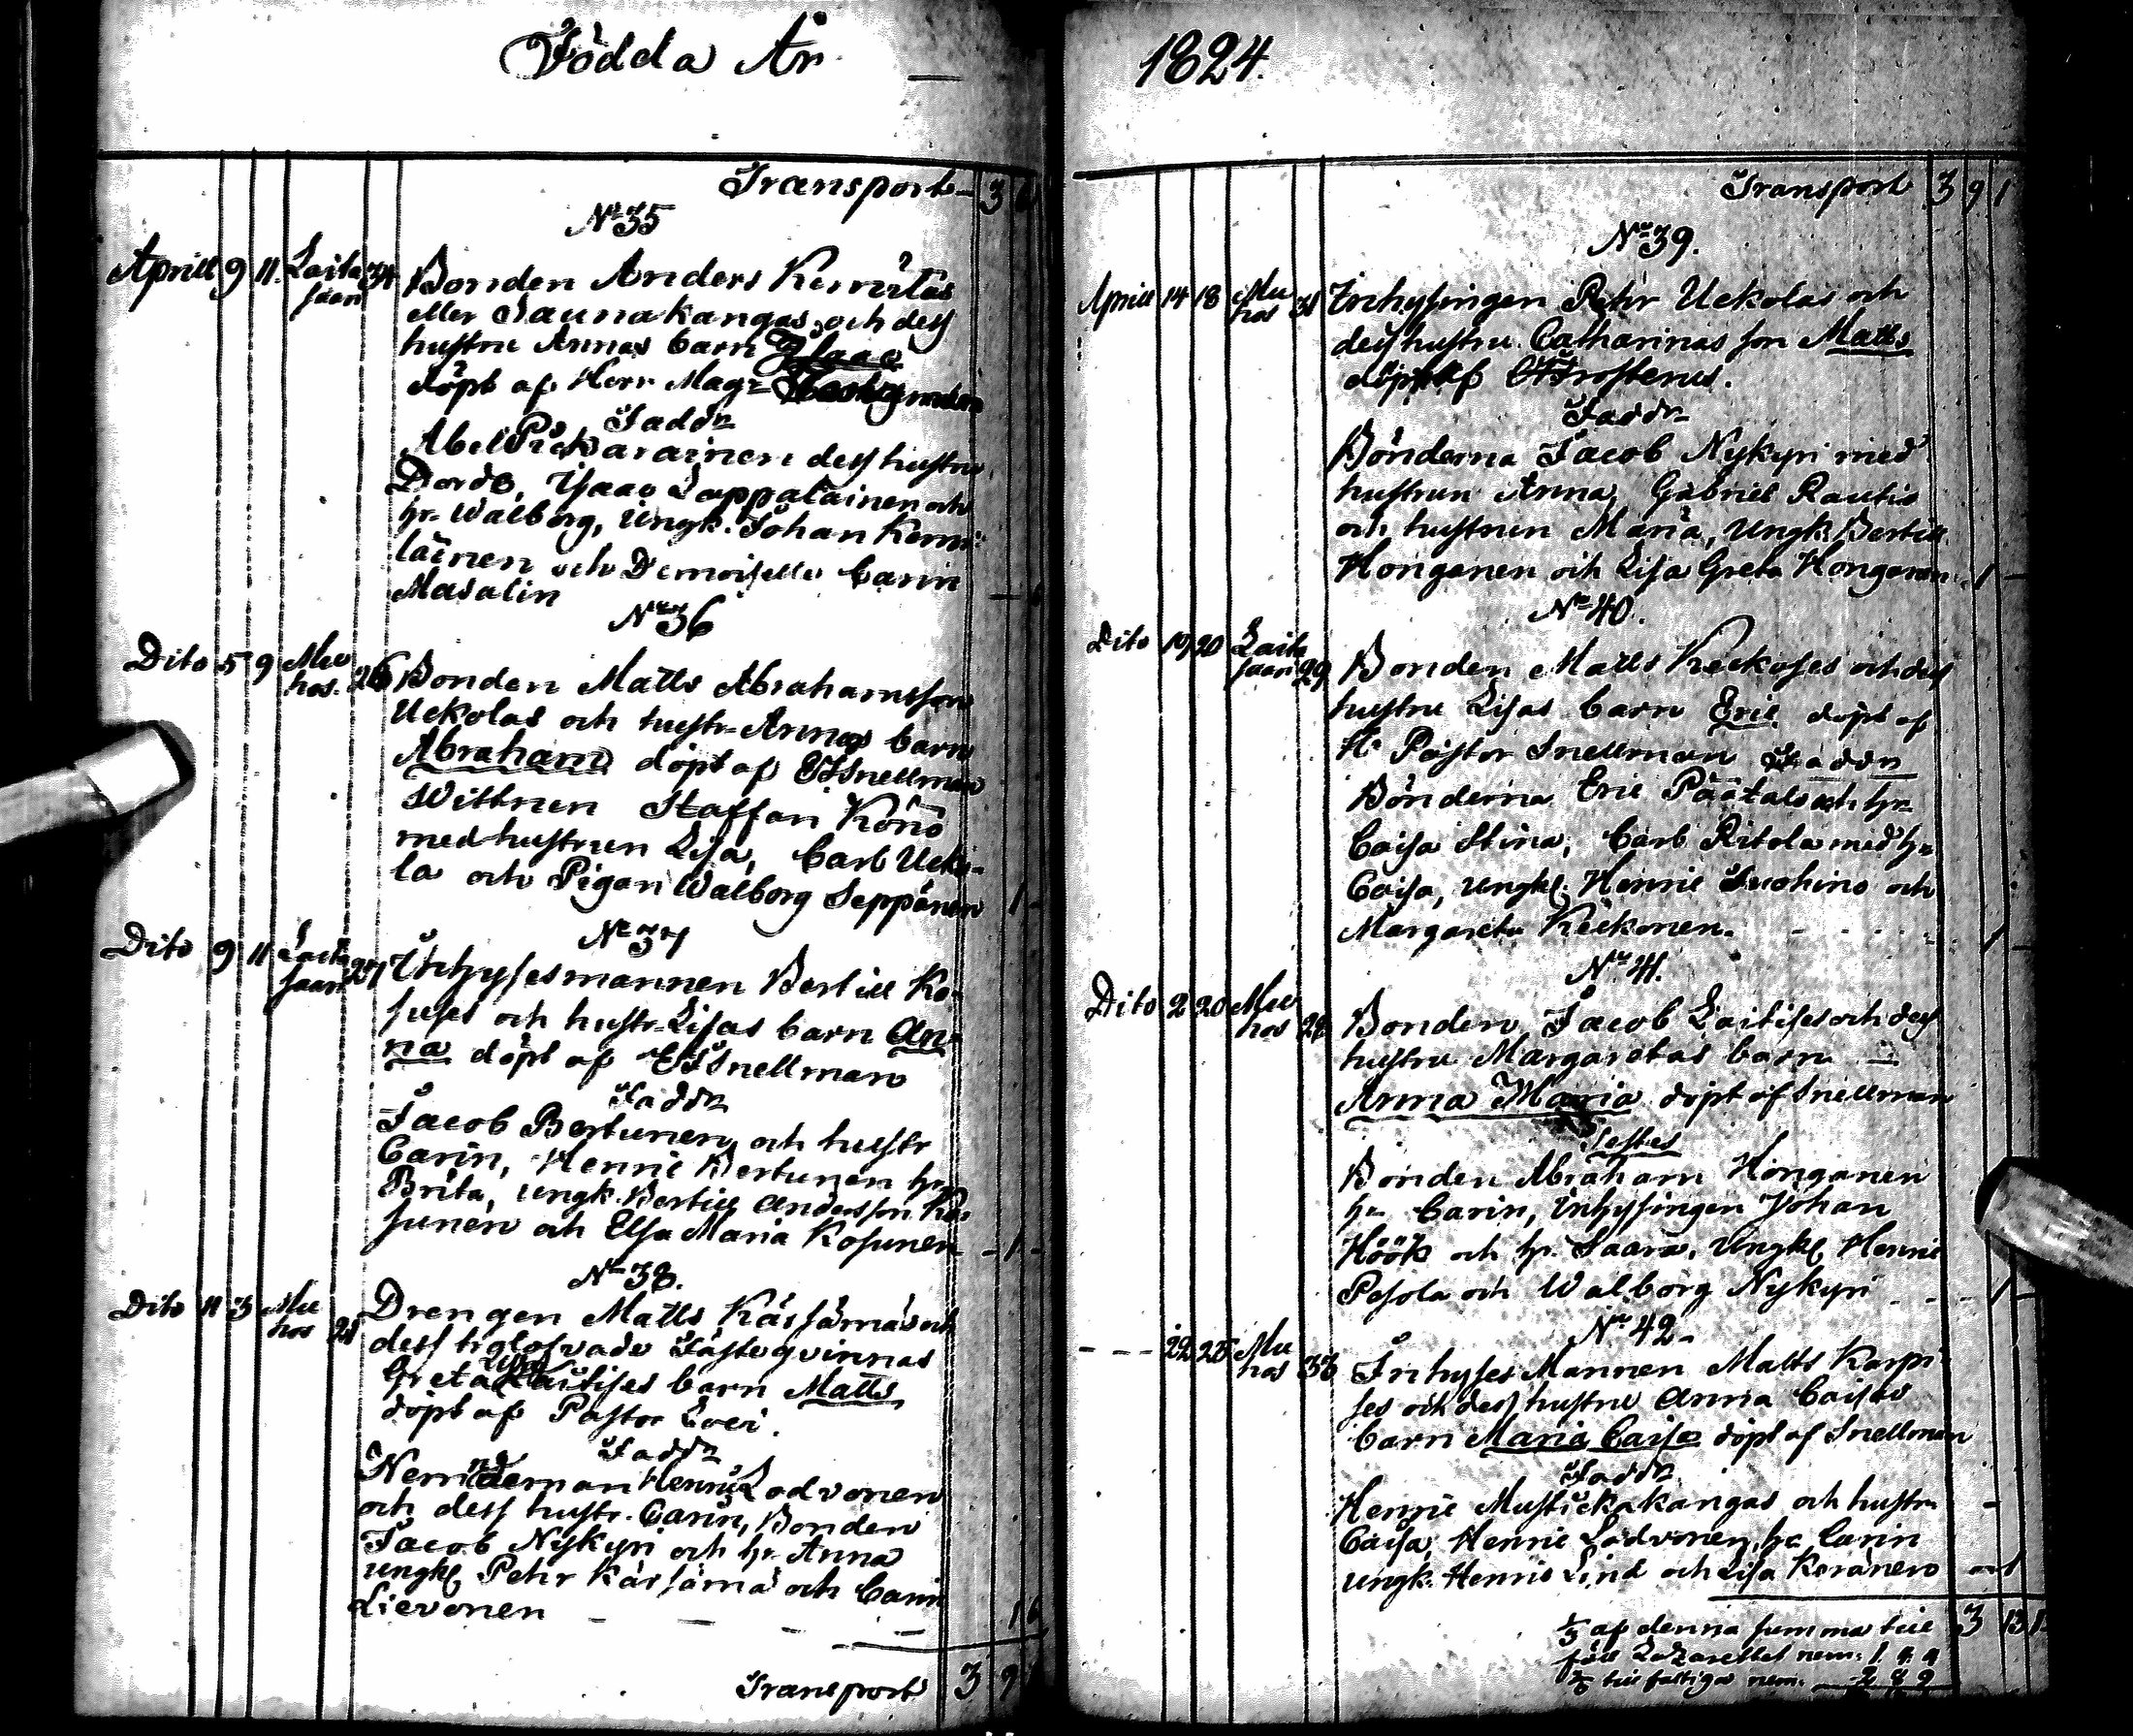 Födda År
Transport 3 6
No 35
Aprill 9 11. Laita saari 34 Bonden Anders Kemiläs
eller Saunakangas och dess
hustru Annas barn Isaac
döpt af Herr Magr
Faddr
Abel Pickarainen dess hustru
Dordo, Isaac Lappalainen och
hr. Walborg, Ungk. Johan Kemi-
läinen och Demoiselle Carin
Masalin
No 36
Dito 5 9 Mu hos. 26 Bonden Matts Abrahamsson
Uckolas och hustr Annas barn
Abraham döpt af E Snellman
Wittnen Staffan Könö
med hustrun Lisa, Carl Ucko-
la och Pigan Walborg Seppänen 1 -
No 37
Dito 9 11 Laita saari 27 Inhysesmannen Bertill Ko-
suses och hustr Lisas barn An-
na döpt af E Snellman
Faddr
Jacob Bertunen och hustr
Carin, Henric Bertunen hr
Brita, ungk. Bertill Andersson Ko-
sunen och Elsa Maria Kosunen - 1 -
No 38.
Dito 11 Mu hos Drengen Matts Kärsämäs och
dess trolofvade Fästeqvinnas
Greta Lisa Laitises barn Matts
döpt af Pastor
Faddr
Nemndeman Henric Lodvonen
och dess hustr. Carin, Bonden
Jacob Nykyri och hr. Anna
ungk Petr Kärsämä och Carin
Lievonen 1 6
Transport 3 9
1824.
Transport 3 9 1
No 39.
Aprill 14 18 Mu hos 31 Inhysingen Petr Uckolas och
dess hustru Catharinas son Matts
döpt af Frosterus.
Faddr
Bönderna Jacob Nykyri med
hustrun Anna, Gabriel Rautio
och hustrun Maria, Ungk Bertill
Honganen och Lisa Greta Honganen 1 -
No 40.
Dito 19 20 Laita saari 29 Bonden Matts Keckoses och dess
hustru Lisas barn Eric döpt af
H. Pastor Snellman Faddr
Bönderna Eric Päätalo och hr
Caisa Stina, Carl Ritola med hr
Caisa, ungkl. Henric Suohino och
Margareta Keckonen. 1 -
No 41.
Dito 2 20 Mu hos 22 Bonden Jacob Laitises och dess
hustru Margaretas barn
Anna Maria döpt af Snellman
Testes
Bonden Abraham Honganen
hr Carin, Inhysingen Johan
Höök och hr. Saara, Ungkl Henric
Pesola och Walborg Nykyri 1 -
No 42
22 25 Mu hos 33 Inhyses Mannen Matts Karpi-
ses och dess hustru Anna Caisas
barn Maria Caisa döpt af Snellman
Faddr
Henric Mustickakangas och hustr
Caisa, Henric Lodvonen, hr Carin
ungk. Henric Lind och Lisa Keränen
3 13 1
1/3 af denna summa till
för Lazarettet nem: 1 4 4
2/3 till fattiga nem. 2 8 9